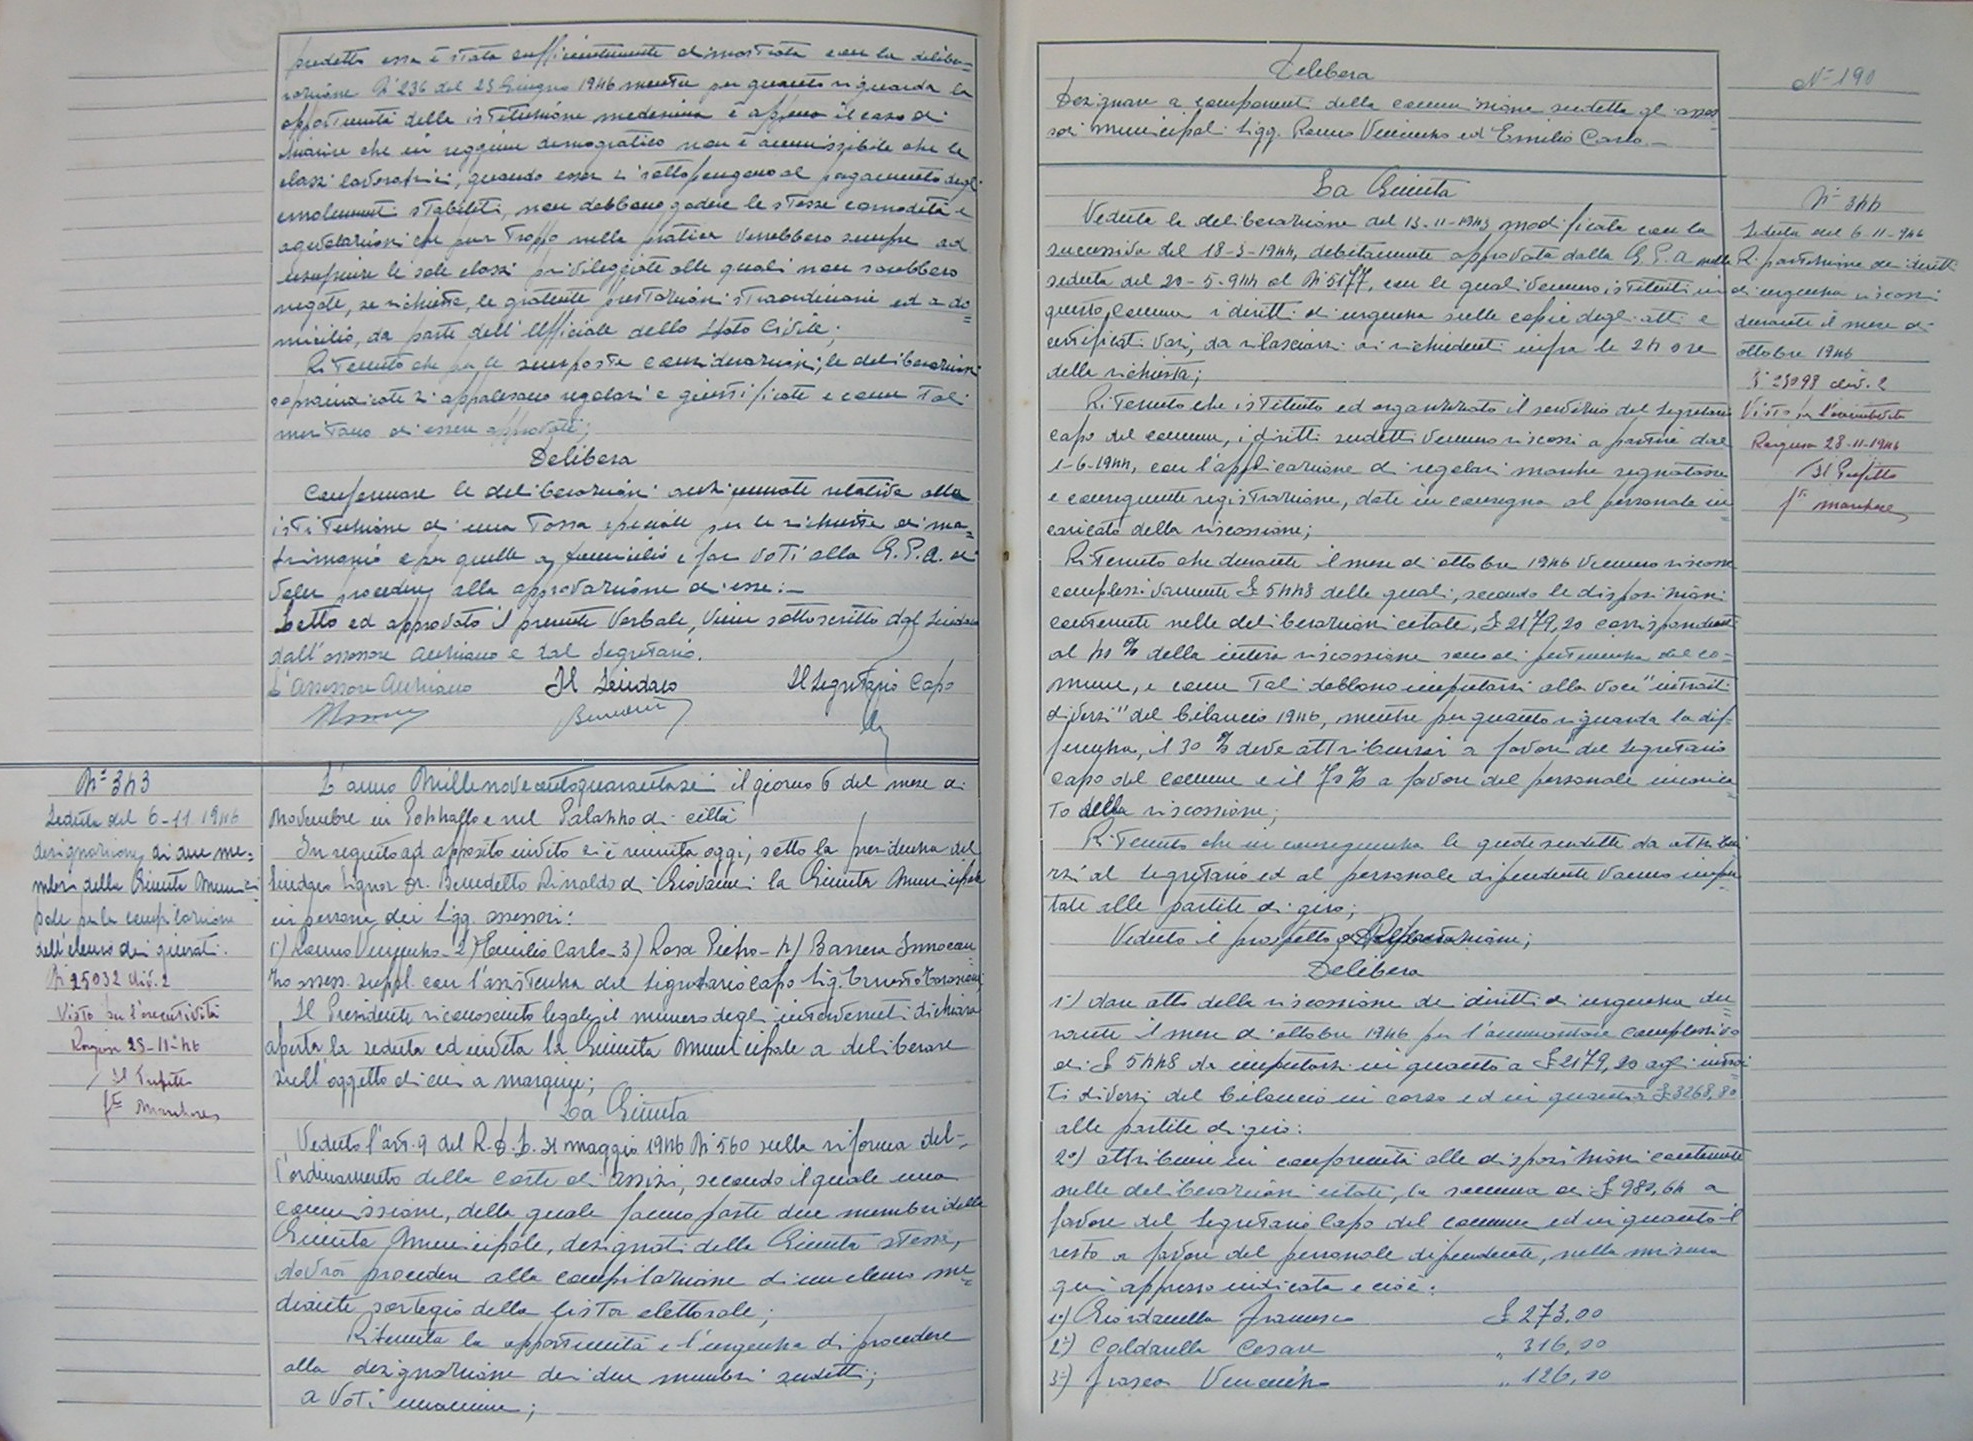 predetta essa è stata sufficientemente dimostrata con la delibe-
razione N° 236 del 23 Giugno 1946 mentre per quanto riguarda la
opportunità della istituzione medesima è appena il caso di
chiarire che in reggime demogratico non è ammissibile che le
classi lavoratrici, quando esse si sottopengono al pagamento degli
emolumenti stabiliti, non debbano godere le stesse comodità e
agevolazioni che pur troppo nella pratica verrebbero sempre ad
usufruire le sole classi privileggiate alle quali non sarebbero
negate, se richieste, le gratuite prestazioni straordinarie ed a do=
micilio, da parte dell'Ufficiale dello Stato Civile;
Ritenuto che per le suesposte considerazioni, le deliberazioni
sopraindicate si appalesano regolari e giustificate e come tali
meritano di essere approvate;
Delibera
Confermare le deliberazioni anzicennate relative alla
istituzione di una tassa speciale per le richieste di ma=
trimonio e per quelle a domicilio e far voti alla G.P.A. di
voler procedere alla approvazione di esse:-
Letto ed approvato il presente verbale, viene sottoscritto dal Sindaco
dall'assessore anziano e dal Segretario.
L'Assessore Anziano Il Sindaco Il Segretario Capo
N° 343
Seduta del 6-11 1946
designazione di due me=
mbri della Giunta Munici
pale per la compilazione
dell'elenco dei giurati.
N° 25032 div. 2
Visto per l'esecutività
Ragusa 23-11-46
Il Prefetto
L'anno Millenovecentoquarantasei il giorno 6 del mese di
Novembre in Pozzallo e nel Palazzo di città
In seguito ad apposito invito si è riunita oggi, sotto la presidenza del
Sindaco Signor Dr. Benedetto Rinaldo di Giovanni la Giunta Municipale
in persona dei Sigg. assessori:
1) Ranno Vincenzo - 2) Emilio Carlo - 3) Rosa Pietro - 4) Barrera Innocen
zo assess. suppl. con l'assistenza del Segretario capo Sig. Ernesto
Il Presidente riconosciuto legale il numero degli intervenuti dichiara
aperta la seduta ed invita la Giunta Municipale a deliberare
sull'oggetto di cui a margine;
La Giunta
Veduto l'art. 9 del R.D.L. 31 maggio 1946 N° 560 sulla riforma del-
l'ordinamento della corte di assisi, secondo il quale una
commissione, della quale fanno parte due membri della
Giunta Municipale, designati dalla Giunta stessa,
dovrà procedere alla compilazione di un elenco me=
diante sorteggio della lista elettorale;
Ritenuta la opportunità e l'urgenza di procedere
alla designazione dei due membri sudetti;
a voti unanimi;
N° 190
Delibera
Designare a componenti della commissione sudetta gli asses
sori municipali Sigg. Ranno Vincenzo ed Emilio Carlo.-
La Giunta
Veduta la deliberazione del 13-11-1943 modificata con la
successiva del 18-3-1944, debitamente approvata dalla G.P.A. nella
seduta del 20-5-944 al N° 5177, con le quali vennero istituiti in
questo comune i diritti di urgenza sulle copie degli atti e
certificati vari, da rilasciarsi ai richiedenti infra le 24 ore
della richiesta;
Ritenuto che istituito ed organizzato il servizio dal Segretario
capo del comune, i diritti sudetti vennero riscossi a partire dal
1-6-1944, con l'applicazione di regolari marche segnatasse
e conseguente registrazione, date in consegna al personale in=
caricato della riscossione;
Ritenuto che durante il mese di ottobre 1946 vennero riscosse
complessivamente £ 5448 delle quali, secondo le disposizioni
contenute nelle deliberazioni citate, £ 2179,20 corrispondenti
al 40% della intera riscossione sono di pertinenza del co=
mune, e come tali debbono imputarsi alla voce "introiti
diversi" del bilancio 1946, mentre per quanto riguarda la dif=
ferenza, il 30% deve attribuirsi a favore del Segretario
capo del comune e il 70% a favore del personale incarica
to della riscossione;
Ritenuto che in conseguenza le quote sudette da attribui
rsi al Segretario ed al personale dipendente vanno impu
tate alle partite di giro;
Veduto il prospetto
Delibera
1°) dare atto della riscossione dei diritti di urgenza du=
rante il mese di ottobre 1946 per l'ammontare complessivo
di £ 5448 da imputarsi in quanto a £ 2179,20 agli introi
ti diversi del bilancio in corso ed in quanto a £ 3268,80
alle partite di giro:
2°) attribuire in conformità alle disposizioni contenute
nelle deliberazioni citate, la somma di £ 980,64 a
favore del Segretario Capo del comune ed in quanto il
resto a favore del personale dipendente, nella misura
qui appresso indicata e cioè:
1°) Giordanella Francesco £ 273,00
2°) Caldarella Cesare " 316,00
3°) Frasca Vincenzo " 126,00
N° 344
Seduta del 6-11-946
Ripartizione dei diritti
di urgenza riscossi
durante il mese di
ottobre 1946
N° 25098 div. 2
Visto per l'esecutività
Ragusa 28-11-1946
Il Prefetto